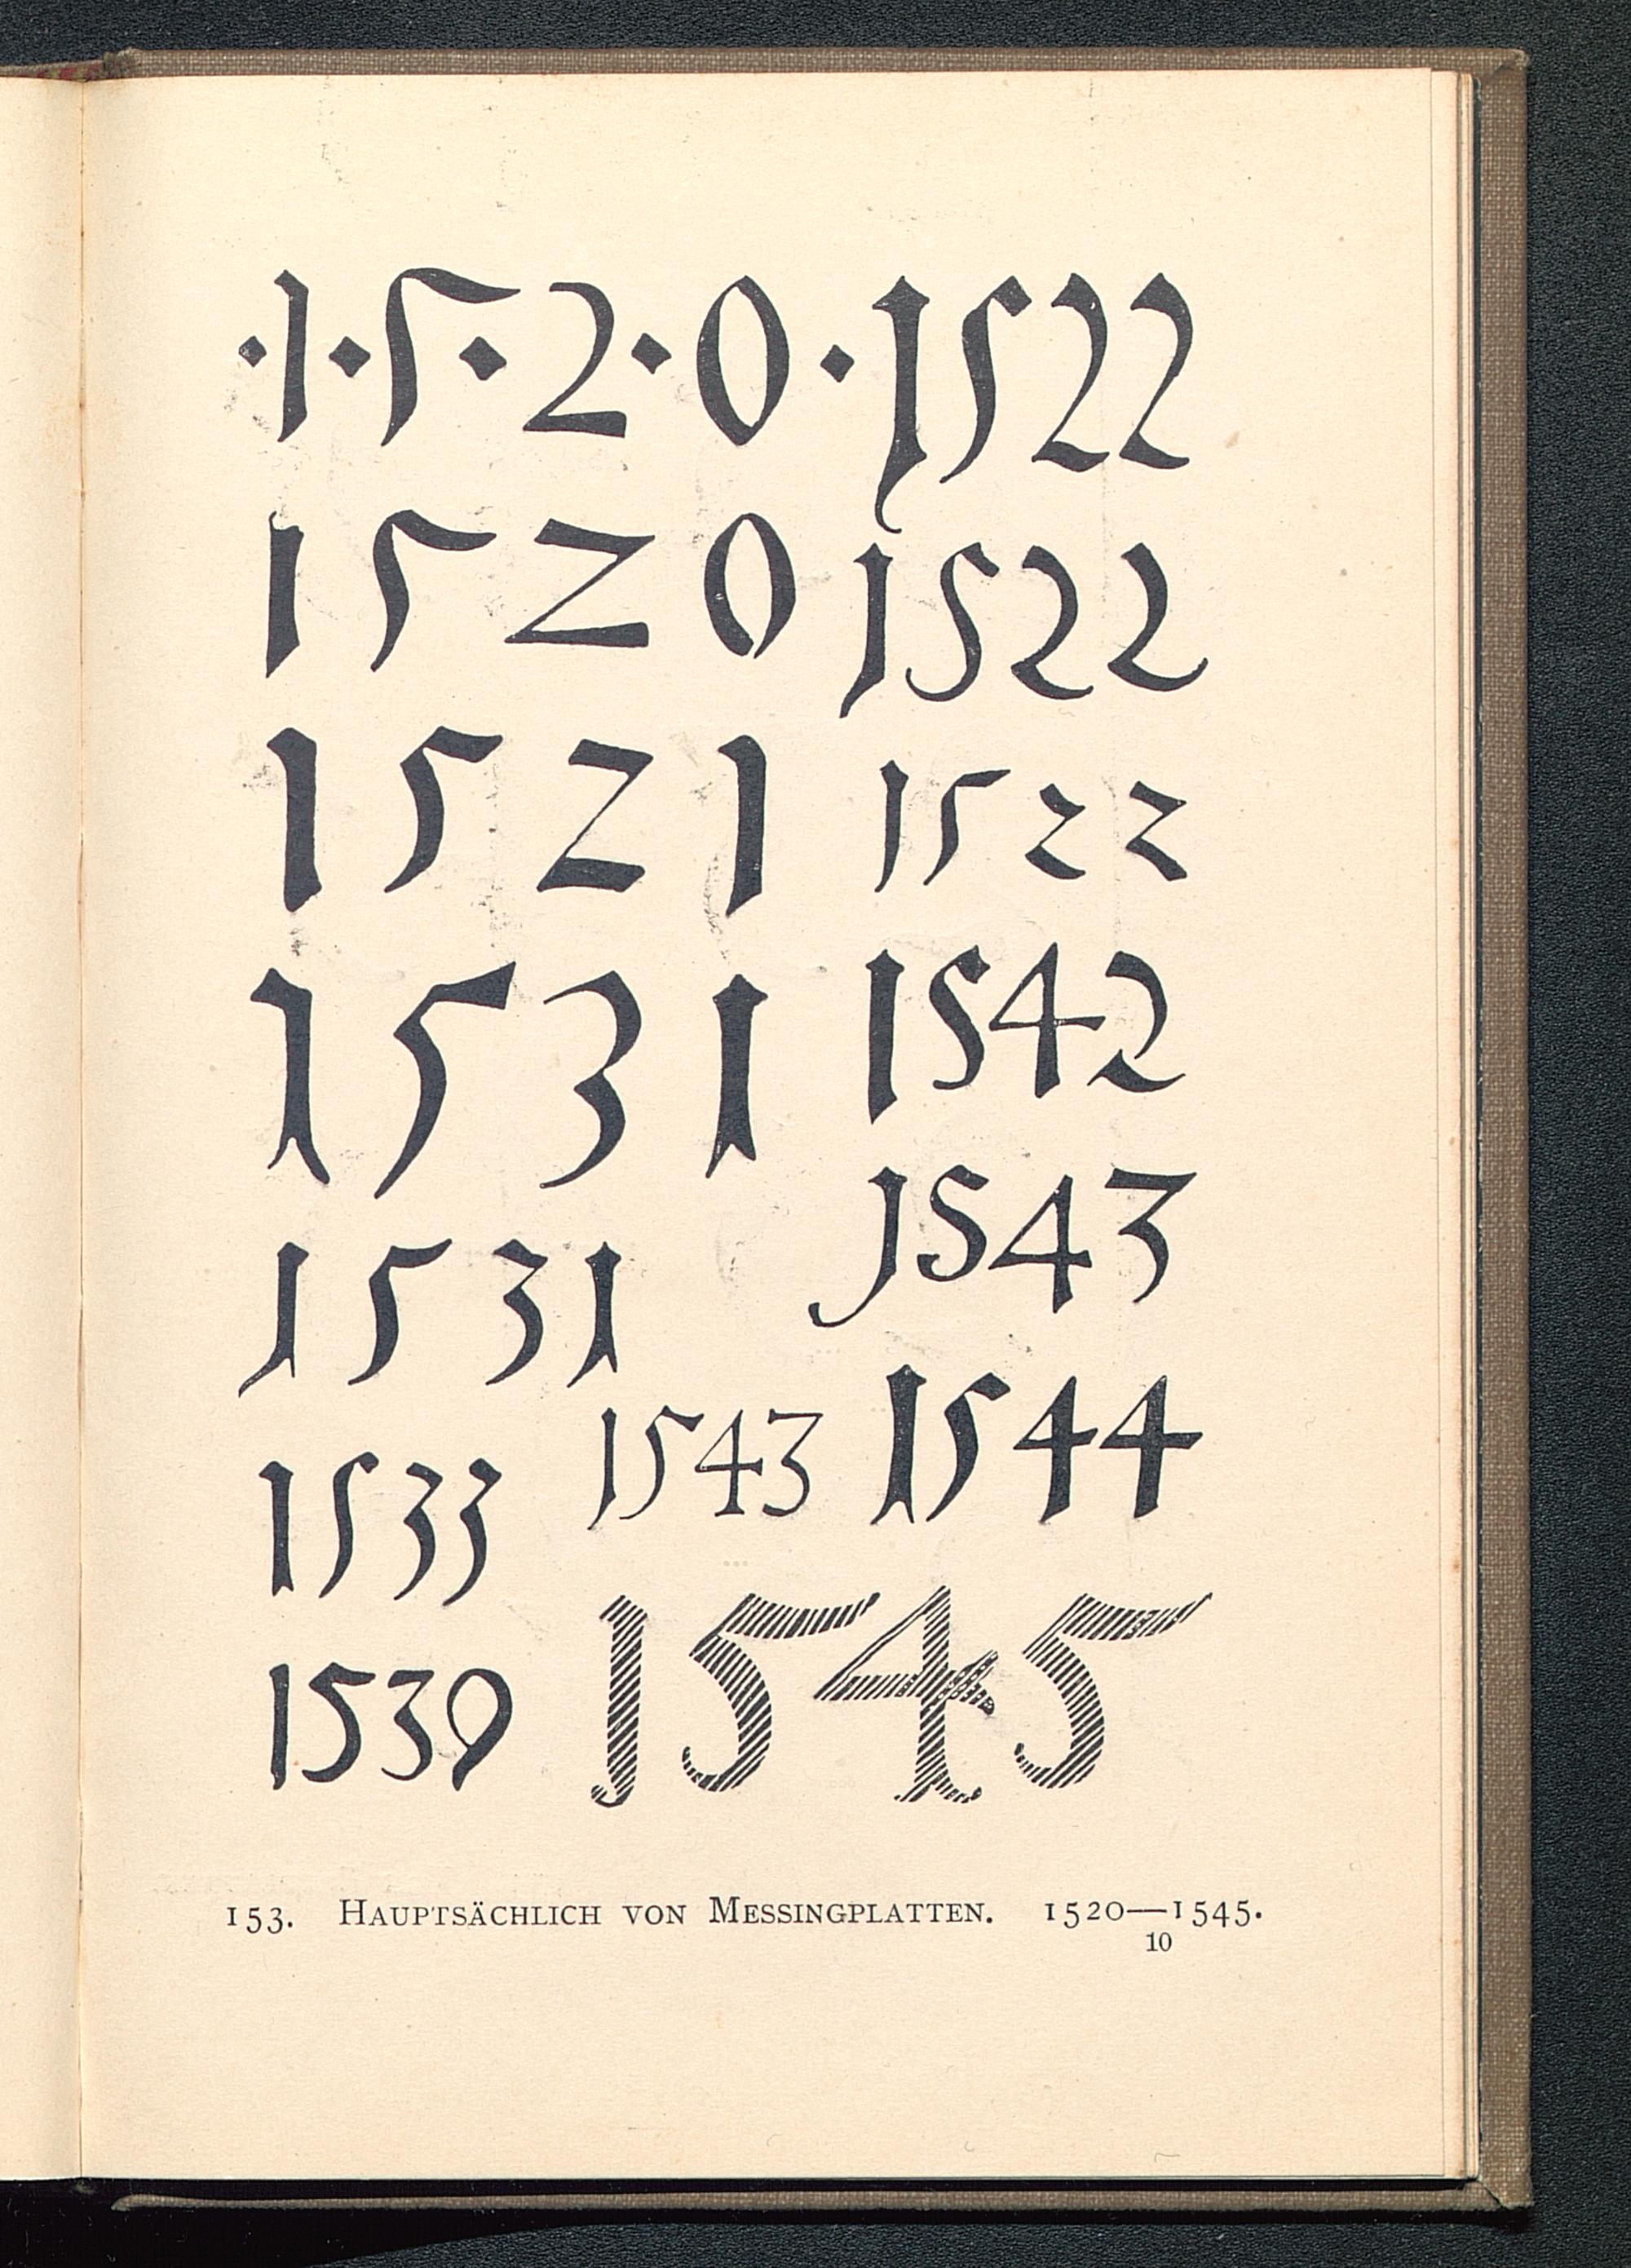 ·1·5·2·0· 1522
1520 1522
1521 1522
1531 1542
1543
1531
1543 1544
1533
1539 1545
153. Hauptsächlich von Messingplatten. 1520—1545.
10